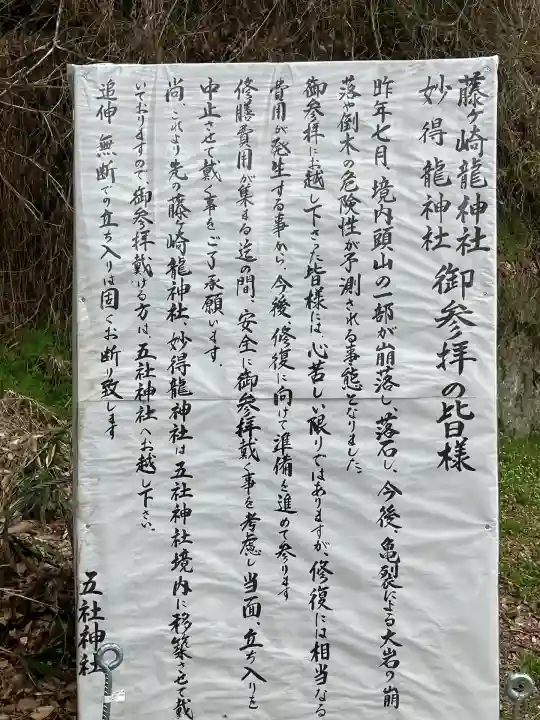 藤ヶ崎龍神社
妙得龍神社
御参拝の皆様
昨年七月、境内頭山の一部が崩落し、落石し、今後、亀裂による大岩の崩
落や倒木の危険性が予測される事態となりました。
御参拝にお越し下さった皆様には心苦しい限りではありますが、修復には相当なる
費用が発生する事から、今後、修復に向けて準備を進めて参ります
修膳費用が集まる迄の間、安全に御参拝戴く事を考慮し当面、立ち入りを
中止させて戴く事をご了承願います。
尚、これより先の藤ヶ崎龍神社、妙得龍神社は五社神社境内に移築させて戴
いておりますので御参拝戴ける方は五社神社へお越し下さい。
追伸 無断での立ち入りは固くお断り致します
五社神社